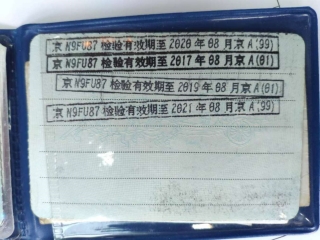 京 N9FU87 检验有效期至 2020 年 08 月京 A(99)
京 N9FU87 检验有效期至 2017 年 08 月京 A(01)
京 N9FU87 检验有效期至 2019 年 08 月京 A(01)
京 N9FU87 检验有效期至 2021 年 08 月京 A(99)